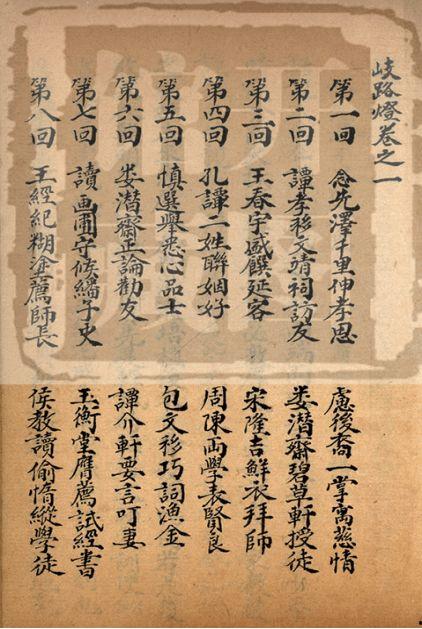 岐路燈卷之一
第一回 念先澤千里伸孝思 慮後裔一掌寓慈情
第二回 譚孝移文靖祠訪友 婁潛齋碧草軒授徒
第三回 王春宇盛饌延客 宋隆吉鮮衣拜師
第四回 孔譚二姓聯姻好 周陳兩學表賢良
第五回 慎選舉悉心品士 包文移巧詞漁金
第六回 婁潛齋正論勸友 譚介軒要言叮妻
第七回 讀畫圃守候繙子史 玉衡堂膺薦試經書
第八回 王經紀糊塗薦師長 侯教讀偷惰縱學徒